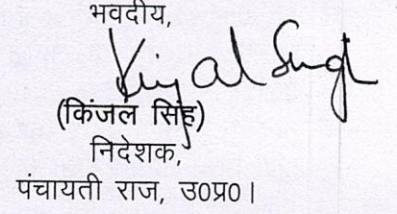 भवदीय,
Kinjal Singh
(किंजल सिंह)
निदेशक,
पंचायती राज, उ0प्र0।